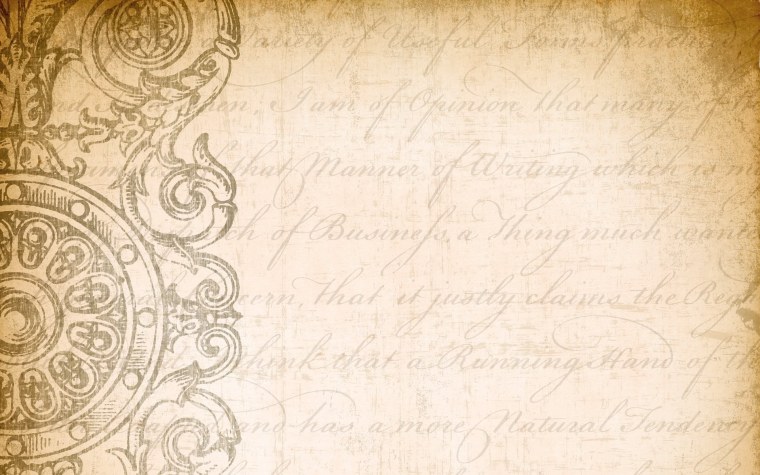 a Variety of Useful Forms practised
men, I am of Opinion, that many of the
that Manner of Writing which is
of Business, a Thing much
that it justly claims the
think that a Running Hand of th
and has a more Natural Tendency